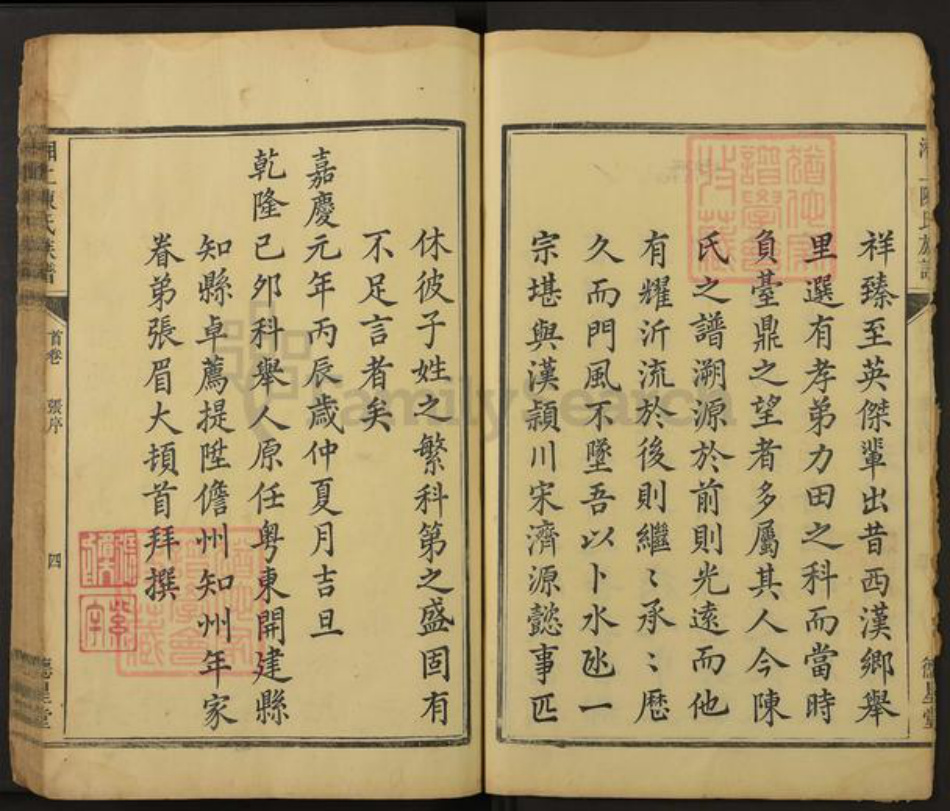 祥臻至英傑輩出昔西漢鄉舉
里選有孝弟力田之科而當時
負臺鼎之望者多屬其人今陳
氏之譜溯源於前則光遠而他
有耀沂流於後則繼〻承〻歷
久而門風不墜吾以卜水氹一
宗堪與漢潁川宋濟源懿事匹
休彼子姓之繁科第之盛固有
不足言者矣
嘉慶元年丙辰歲仲夏月吉旦
乾隆己夘科舉人原任粵東開建縣
知縣卓薦提陞儋州知州年家
眷弟張眉大頓首拜撰
首卷 張序
四
德星堂
FamilySearch